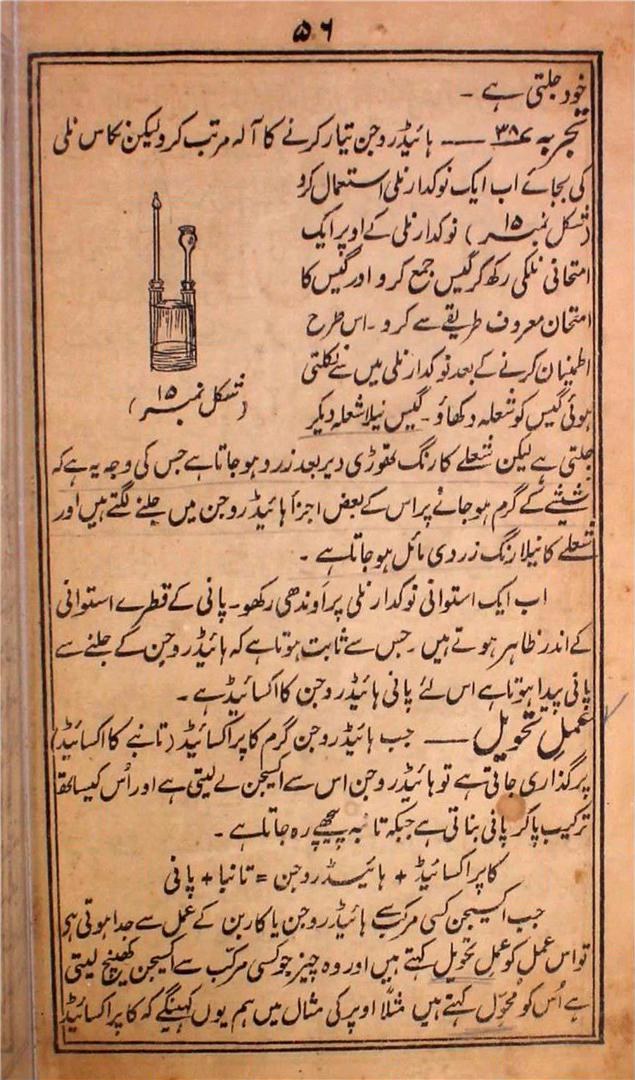 ۵۶
خود جلتی ہے ۔
تجربہ ۳۸ — ہائیڈروجن تیار کرنے کا آلہ مرتب کرو لیکن نکاس نلی
کی بجائے اب ایک نوکدار نلی استعمال کرو
(شکل نمبر ۱۵) نوکدار نلی کے اوپر ایک
امتحانی نلکی رکھ کر گیس جمع کرو اور گیس کا
امتحان معروف طریقے سے کرو ۔ اس طرح
اطمینان کرنے کے بعد نوکدار نلی میں سے نکلتی
ہوئی گیس کو شعلہ دکھاؤ ۔ گیس نیلا شعلہ دیکر
(شکل نمبر ۱۵)
جلتی ہے لیکن شعلے کا رنگ تھوڑی دیر بعد زرد ہو جاتا ہے جس کی وجہ یہ ہے کہ
شیشے کے گرم ہو جانے پر اس کے بعض اجزا ہائیڈروجن میں جلنے لگتے ہیں اور
شعلے کا نیلا رنگ زردی مائل ہو جاتا ہے ۔
اب ایک استوانی نوکدار نلی پر اوندھی رکھو ۔ پانی کے قطرے استوانی
کے اندر ظاہر ہوتے ہیں ۔ جس سے ثابت ہوتا ہے کہ ہائیڈروجن کے جلنے سے
پانی پیدا ہوتا ہے اس لئے پانی ہائیڈروجن کا اکسائیڈ ہے ۔
عملِ تحویل — جب ہائیڈروجن گرم کاپر اکسائیڈ (تانبے کا اکسائیڈ)
پر گذاری جاتی ہے تو ہائیڈروجن اس سے اکسیجن لے لیتی ہے اور اُس کیساتھ
ترکیب پا کر پانی بناتی ہے جبکہ تانبہ پیچھے رہ جاتا ہے ۔
کاپر اکسائیڈ + ہائیڈروجن = تانبا + پانی
جب اکسیجن کسی مرکب سے ہائیڈروجن یا کاربن کے عمل سے جدا ہوتی ہی
تو اس عمل کو عمل تحویل کہتے ہیں اور وہ چیز جو کسی مرکّب سے اکسیجن کھینچ لیتی
ہے اُس کو مُحَوِّل کہتے ہیں مثلاً اوپر کی مثال میں ہم یوں کہینگے کہ کاپر اکسائیڈ